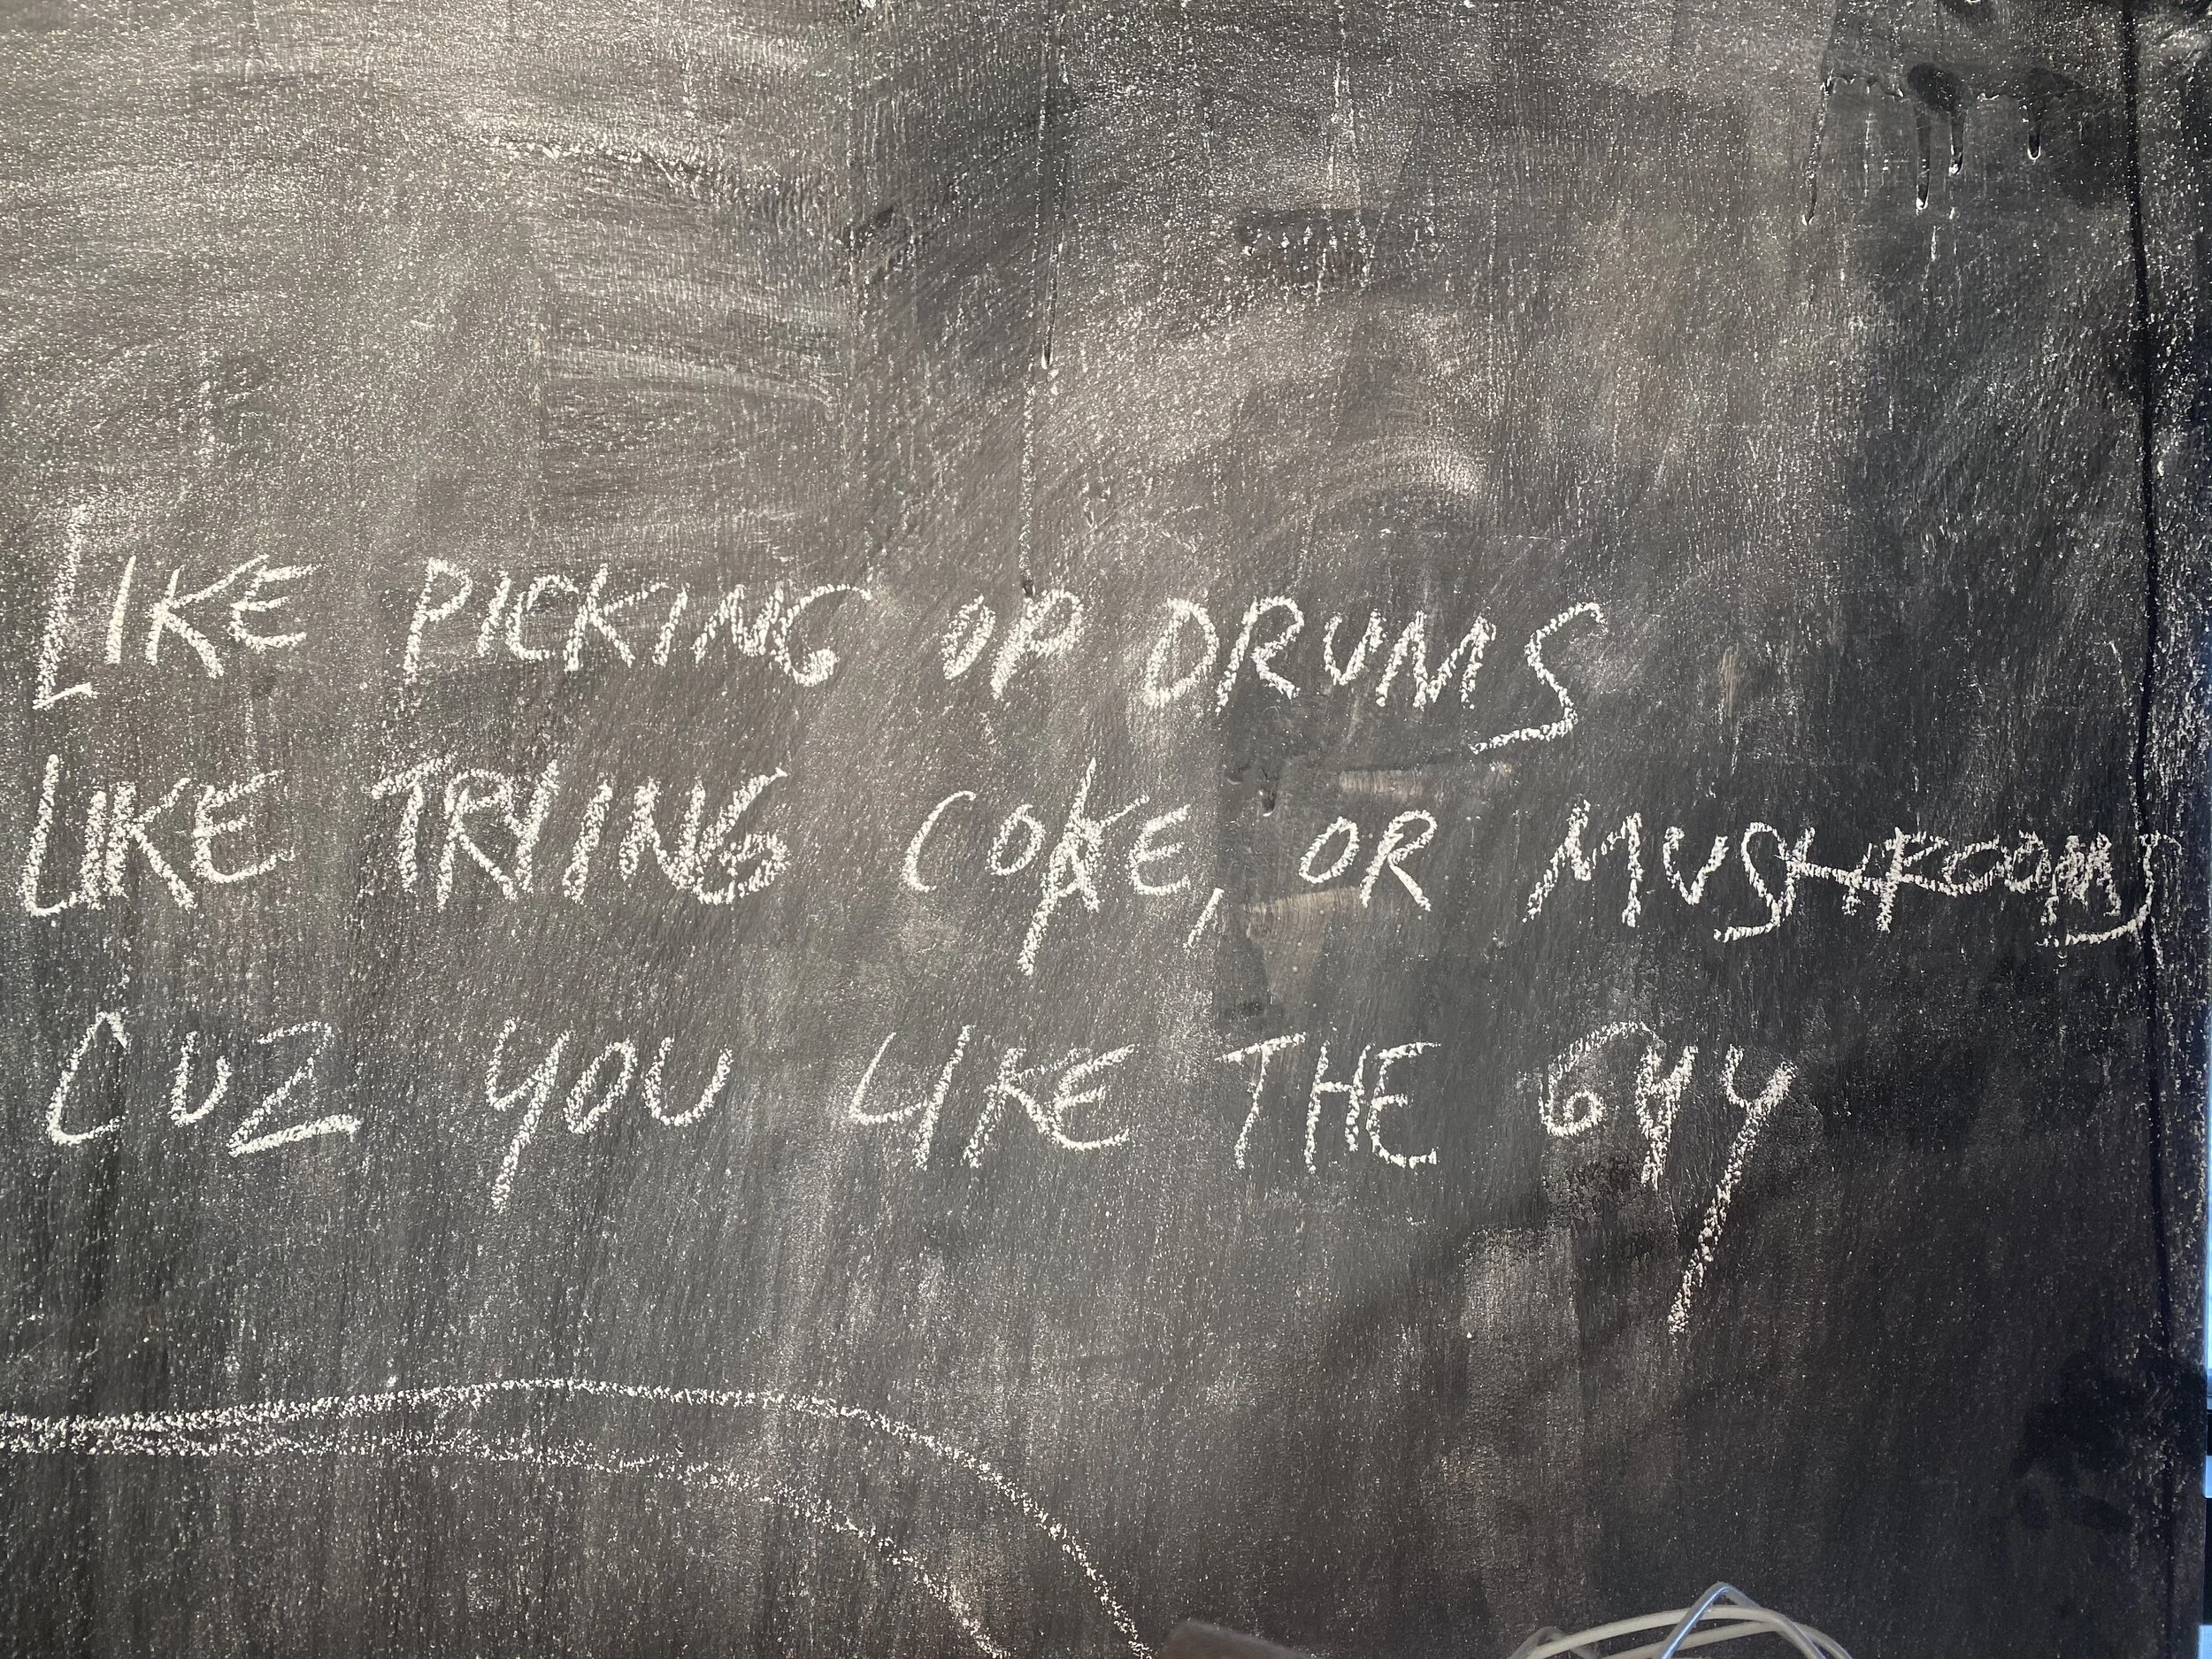 LIKE PICKING UP DRUMS
LIKE TRYING COKE, OR MUSHROOMS
CUZ YOU LIKE THE GUY